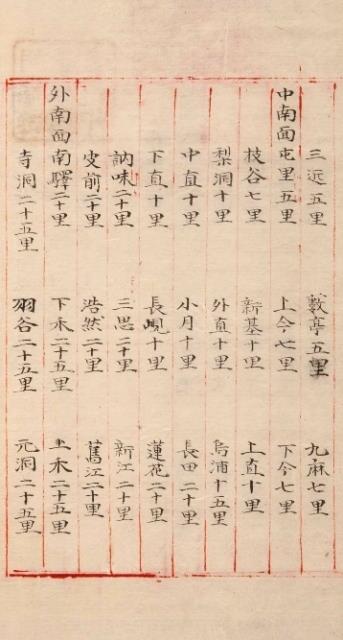 三迲五里 藪亭五里 九麻七里
中南面 屯里五里 上今七里 下今七里
枝谷七里 新基十里 上直十里
梨洞十里 外直十里 烏浦十五里
中直十里 小月十里 長田二十里
下直十里 長峴十里 蓮花二十里
訥味二十里 三思二十里 新江二十里
皮前二十里 浩然二十里 舊江二十里
外南面 南驛二十里 下禾二十五里 上禾二十五里
寺洞二十五里 羽谷二十五里 元洞二十五里